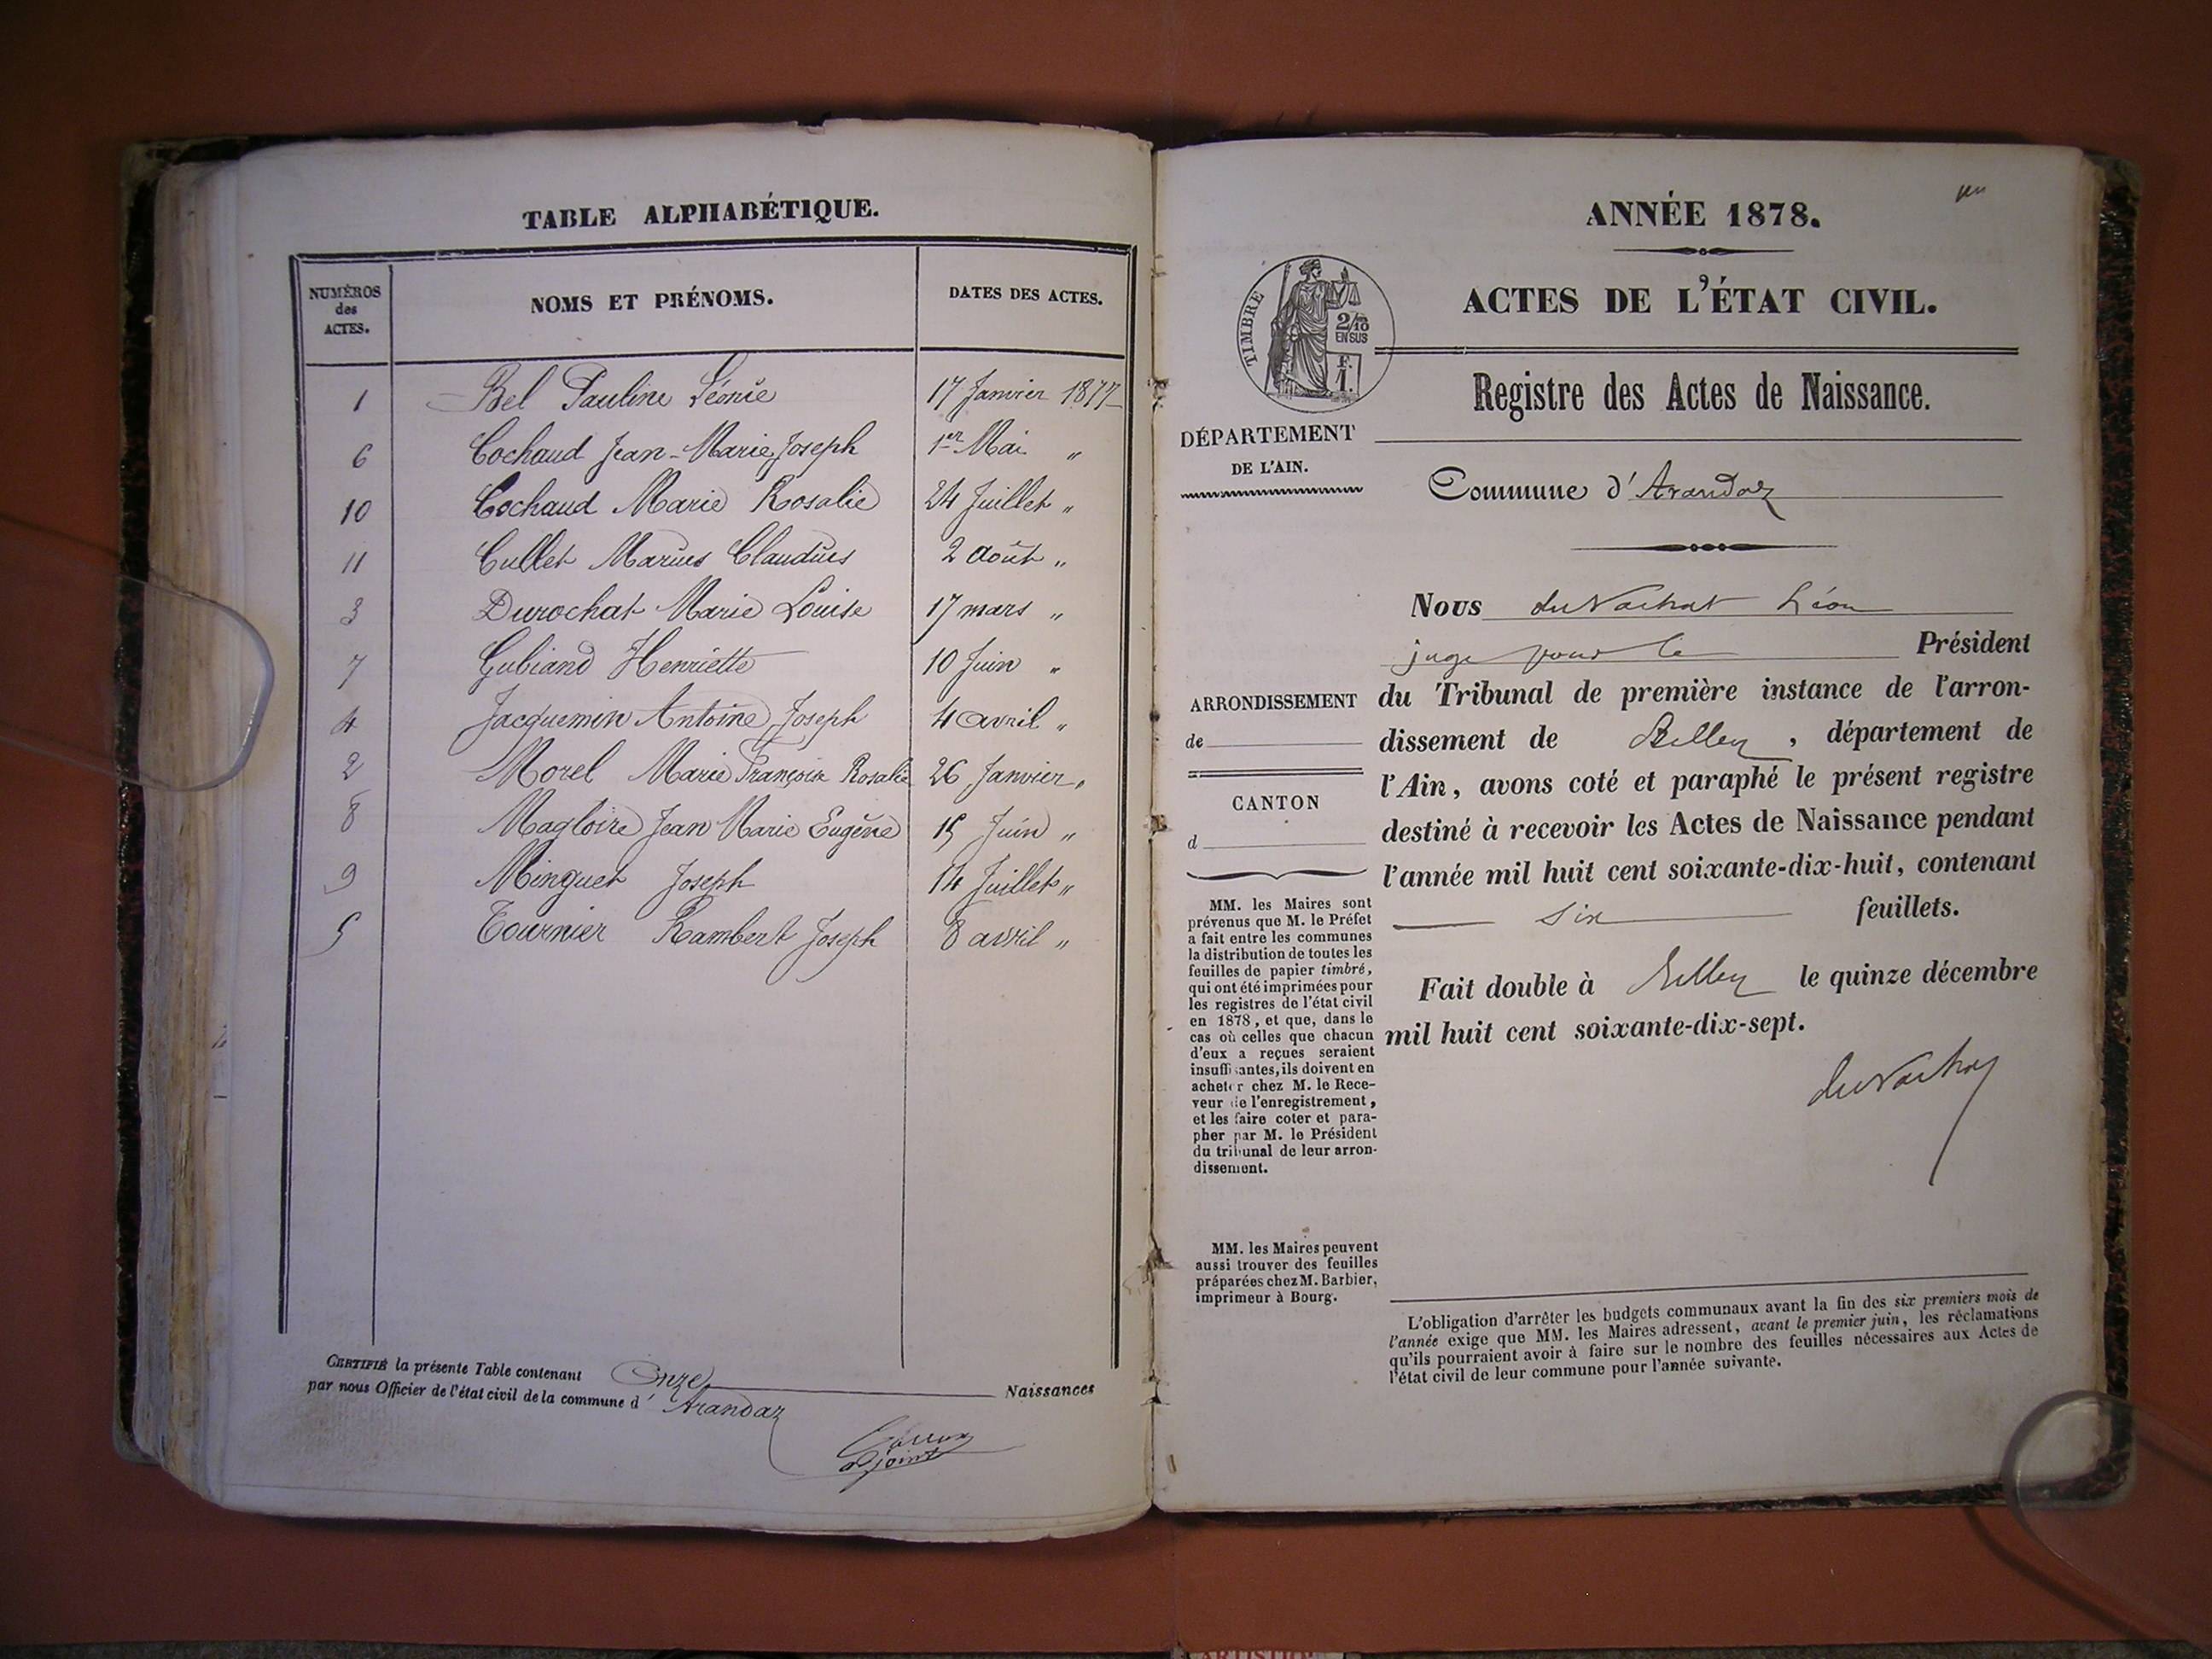 TABLE ALPHABÉTIQUE.
NUMÉROS des ACTES.
NOMS ET PRÉNOMS.
DATES DES ACTES.
1 Bel Pauline Léonie 17 Janvier 1877
6 Cochaud Jean-Marie Joseph 1er Mai "
10 Cochaud Marie Rosalie 24 Juillet "
11 Cullet Marius Claudius 2 août "
3 Durochat Marie Louise 17 mars "
7 Gubiand Henriette 10 Juin "
4 Jacquemin Antoine Joseph 4 avril "
2 Morel Marie Françoise Rosalie 26 Janvier "
8 Magloire Jean Marie Eugène 15 Juin "
9 Minguet Joseph 14 Juillet "
5 Tournier Rambert Joseph 8 avril "
CERTIFIÉ la présente Table contenant Onze Naissances
par nous Officier de l'état civil de la commune d' Arandaz
adjoint
ANNÉE 1878.
ACTES DE L'ÉTAT CIVIL.
TIMBRE
2/10
EN SUS
F.
1.
Registre des Actes de Naissance.
DÉPARTEMENT
DE L'AIN.
Commune d'Arandaz
Nous du Vachat Léon
juge pour le Président
du Tribunal de première instance de l'arron-
dissement de Belley, département de
l'Ain, avons coté et paraphé le présent registre
destiné à recevoir les Actes de Naissance pendant
l'année mil huit cent soixante-dix-huit, contenant
six feuillets.
Fait double à Belley le quinze décembre
mil huit cent soixante-dix-sept.
du Vachat
ARRONDISSEMENT
de
CANTON
d
MM. les Maires sont
prévenus que M. le Préfet
a fait entre les communes
la distribution de toutes les
feuilles de papier timbré,
qui ont été imprimées pour
les registres de l'état civil
en 1878, et que, dans le
cas où celles que chacun
d'eux a reçues seraient
insuffisantes, ils doivent en
acheter chez M. le Rece-
veur de l'enregistrement,
et les faire coter et para-
pher par M. le Président
du tribunal de leur arron-
dissement.
MM. les Maires peuvent
aussi trouver des feuilles
préparées chez M. Barbier,
imprimeur à Bourg.
L'obligation d'arrêter les budgets communaux avant la fin des six premiers mois de
l'année exige que MM. les Maires adressent, avant le premier juin, les réclamations
qu'ils pourraient avoir à faire sur le nombre des feuilles nécessaires aux Actes de
l'état civil de leur commune pour l'année suivante.